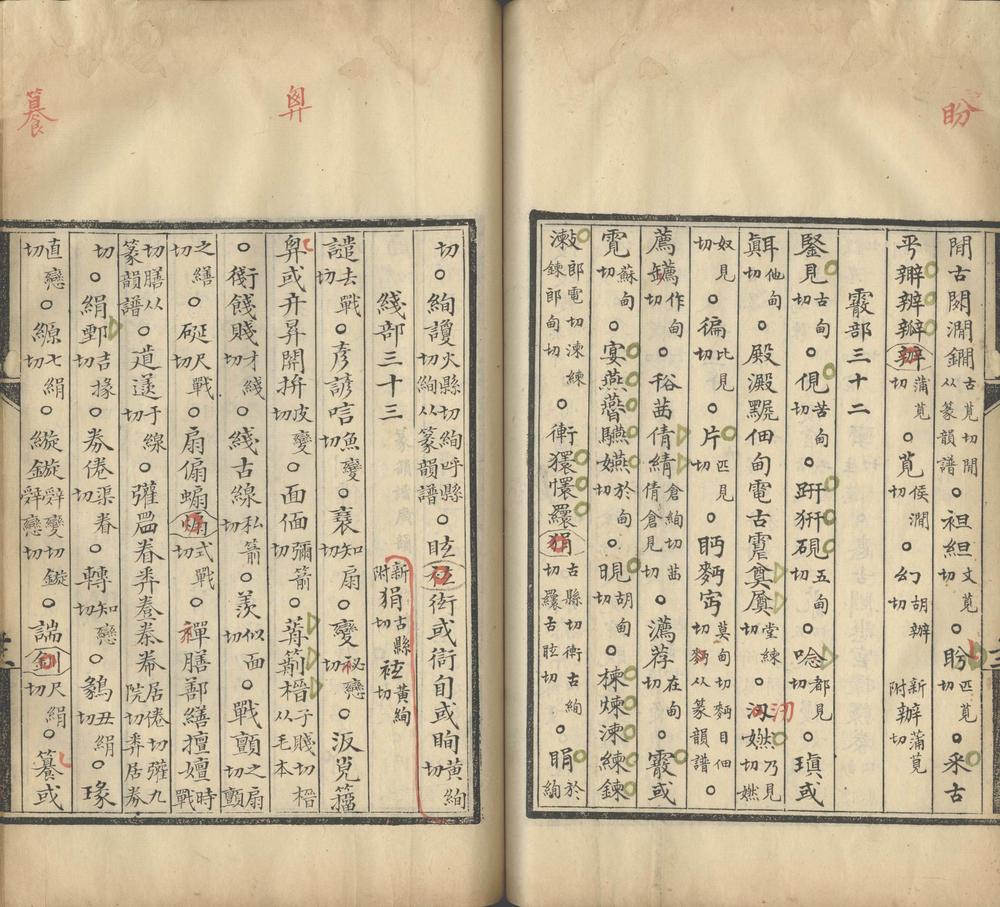 盼
閒古閑澗鐧古莧切閒从篆韻譜○袒組丈莧○盼匹莧○釆古
平辦辦瓣辦蒲莧切○莧侯澗切○幻胡辦切 新附辦蒲莧切
霰部三十二
鋻見古甸切○俔苦甸切○趼豣硯五甸切○唸都見切○瑱或
䏙他甸切眞○殿澱黗佃甸電古霆奠屢堂練切○汈㜣乃見切㜣
奴見切○徧比見切○片匹見切○眄麪宀莫甸切麪目佃切麪从篆韻譜○
薦韉作甸切○䜭茜倩綪倉絢切茜倩倉見切○瀳荐在甸切○霰或
霓蘇甸切○宴燕醼驠嬿於甸切○晛胡甸切○楝煉湅練鍊
潄郎電切湅練鍊郎甸切○衠獧懁羂狷古縣切衠古絢切羂古眩切○睊於絢
弁
纂
切○絢讂火縣切絢呼縣切絢从篆韻譜○眩袨衒或衙旬或眴黃絢切
綫部三十三 新附狷古縣切袨黃絢切
譴去戰切○彥諺唁魚變切○褱知扇切○變祕戀○汳覓籓
弁或卉昪閞拚皮變切○面偭彌箭切○葥箭榗子賤切榗从毛本
○衠餞賤才綫切○綫古線私箭切○羨似面切○戰顫之扇切顫
之繕切○硟尺戰切○扇傓蝙煽式戰切○禪膳鄯繕擅嬗時戰
切膳从篆韻譜○䢔䢭于線切○瓘㽞眷弮韏桊帣居倦切瓘九院切弮居券
切○絹鄄吉掾切○券倦渠眷切○轉知戀切○䝔丑絹切○瑑
直戀切○縓七絹切○縼鏇辝變切鏇辝戀切○諯釧尺絹切○籑或